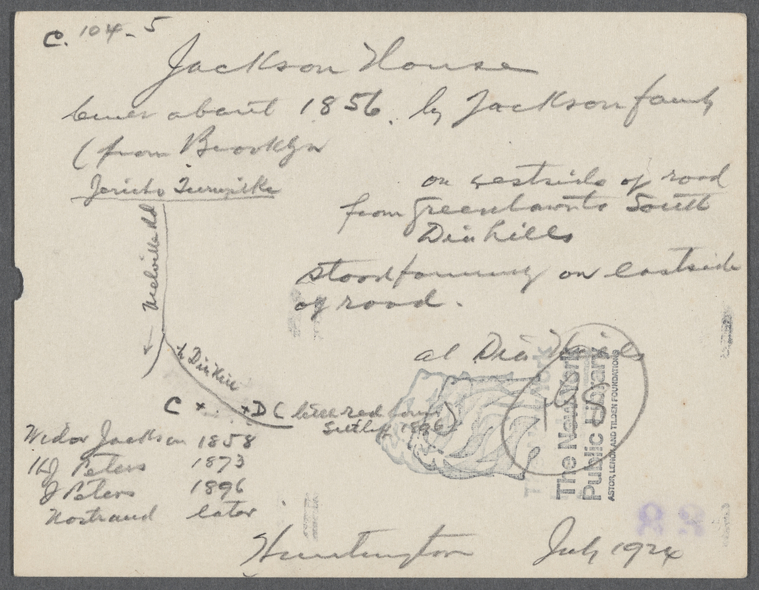 C. 104-5
Jackson House
about 1856. by Jackson family
(from Brooklyn
Jericho Turnpike
on westside of road
from Greenlawn to South
Dixhills
stood formerly on eastside
of road.
Melville Rd
to Dixhills
at Dix Hills
C x x D (little red house)
1896
Widow Jackson 1858
HJ Peters 1873
J Peters 1896
Nostrand later
The New York
Public Library
ASTOR, LENOX AND TILDEN FOUNDATIONS
88
Huntington July 1924